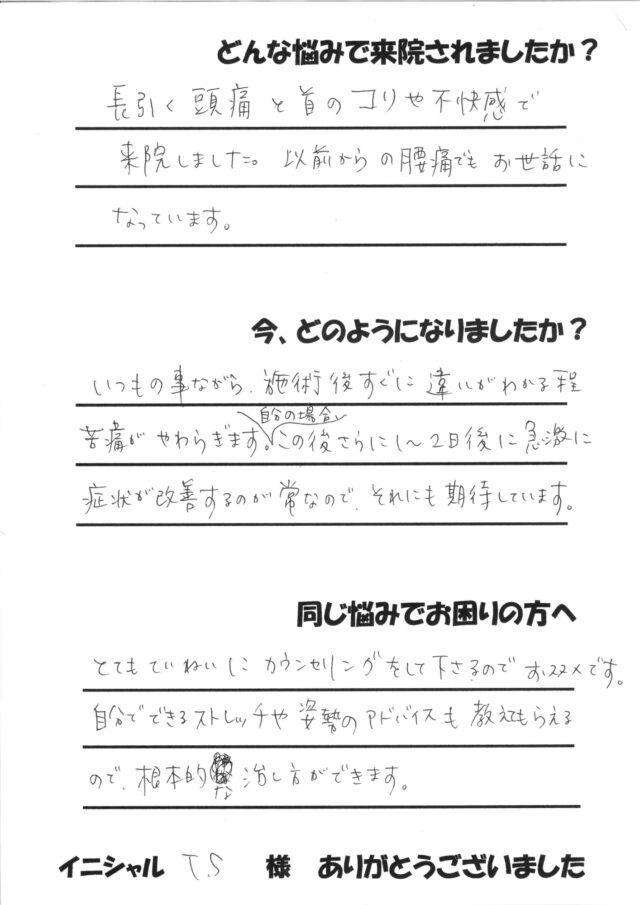 どんな悩みで来院されましたか？
長引く頭痛と首のコリや不快感で
来院しました。以前からの腰痛でもお世話に
なっています。
今、どのようになりましたか？
いつもの事ながら、施術後すぐに違いがわかる程
自分の場合、
苦痛がやわらぎます。この後さらに1～2日後に急激に
症状が改善するのが常なので、それにも期待しています。
同じ悩みでお困りの方へ
とてもていねいにカウンセリングをして下さるのでおススメです。
自分でできるストレッチや姿勢のアドバイスも教えてもらえる
ので、根本的な治し方ができます。
イニシャル T.S 様 ありがとうございました